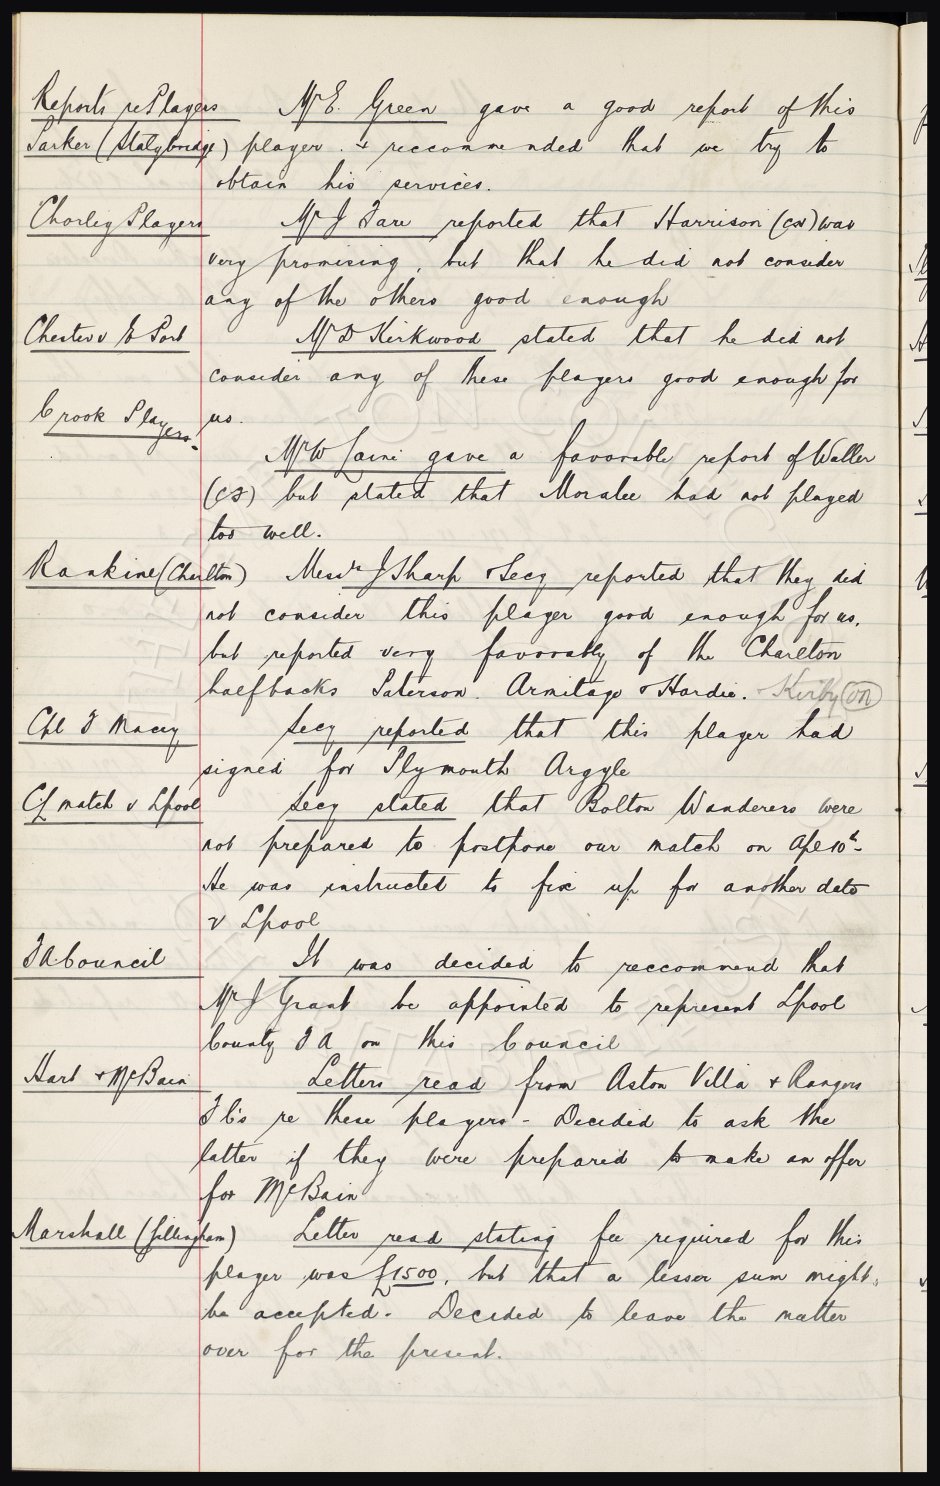 Reports re Players Mr E. Green gave a good report of this
Parker (Stalybridge) player. & reccommended that we try to
obtain his services.
Chorley Players Mr J Fare reported that Harrison (CH) was
very promising, but that he did not consider
any of the others good enough
Chester v E Port Mr D Kirkwood stated that he did not
consider any of these players good enough for
Crook Players. us.
Mr W gave a favorable report of Waller
but stated that Moralee had not played
too well.
Rankine (Charlton) Messrs J Sharp & Secy reported that they did
not consider this player good enough for us,
but reported very favorably of the Charlton
halfbacks Paterson. Armitage & Hardie. & Kirby (OR)
Cpl F Macey Secy reported that this player had
signed for Plymouth Argyle
CL match v Lpool Secy stated that Bolton Wanderers were
not prepared to postpone our match on Apl 10th.
He was instructed to fix up for another date
v Lpool
FA Council It was decided to reccommend that
Mr J Grant be appointed to represent Lpool
County F A on this Council
Hart & McBain Letters read from Aston Villa & Rangers
F C's re these players - Decided to ask the
latter if they were prepared to make an offer
for McBain
Marshall (Gillingham) Letter read stating fee required for this
player was £1500, but that a lesser sum might
be accepted. Decided to leave the matter
over for the present.